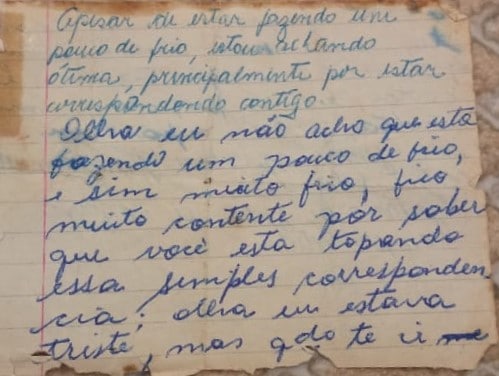 Apesar de estar fazendo um
pouco de frio, estou achando
ótima, principalmente por estar
correspondendo contigo.
Olha eu não acho que esta
fazendo um pouco de frio,
e sim muito frio, fico
muito contente por saber
que você esta topando
essa simples corresponden
cia; olha eu estava
triste, mas qdo te vi me